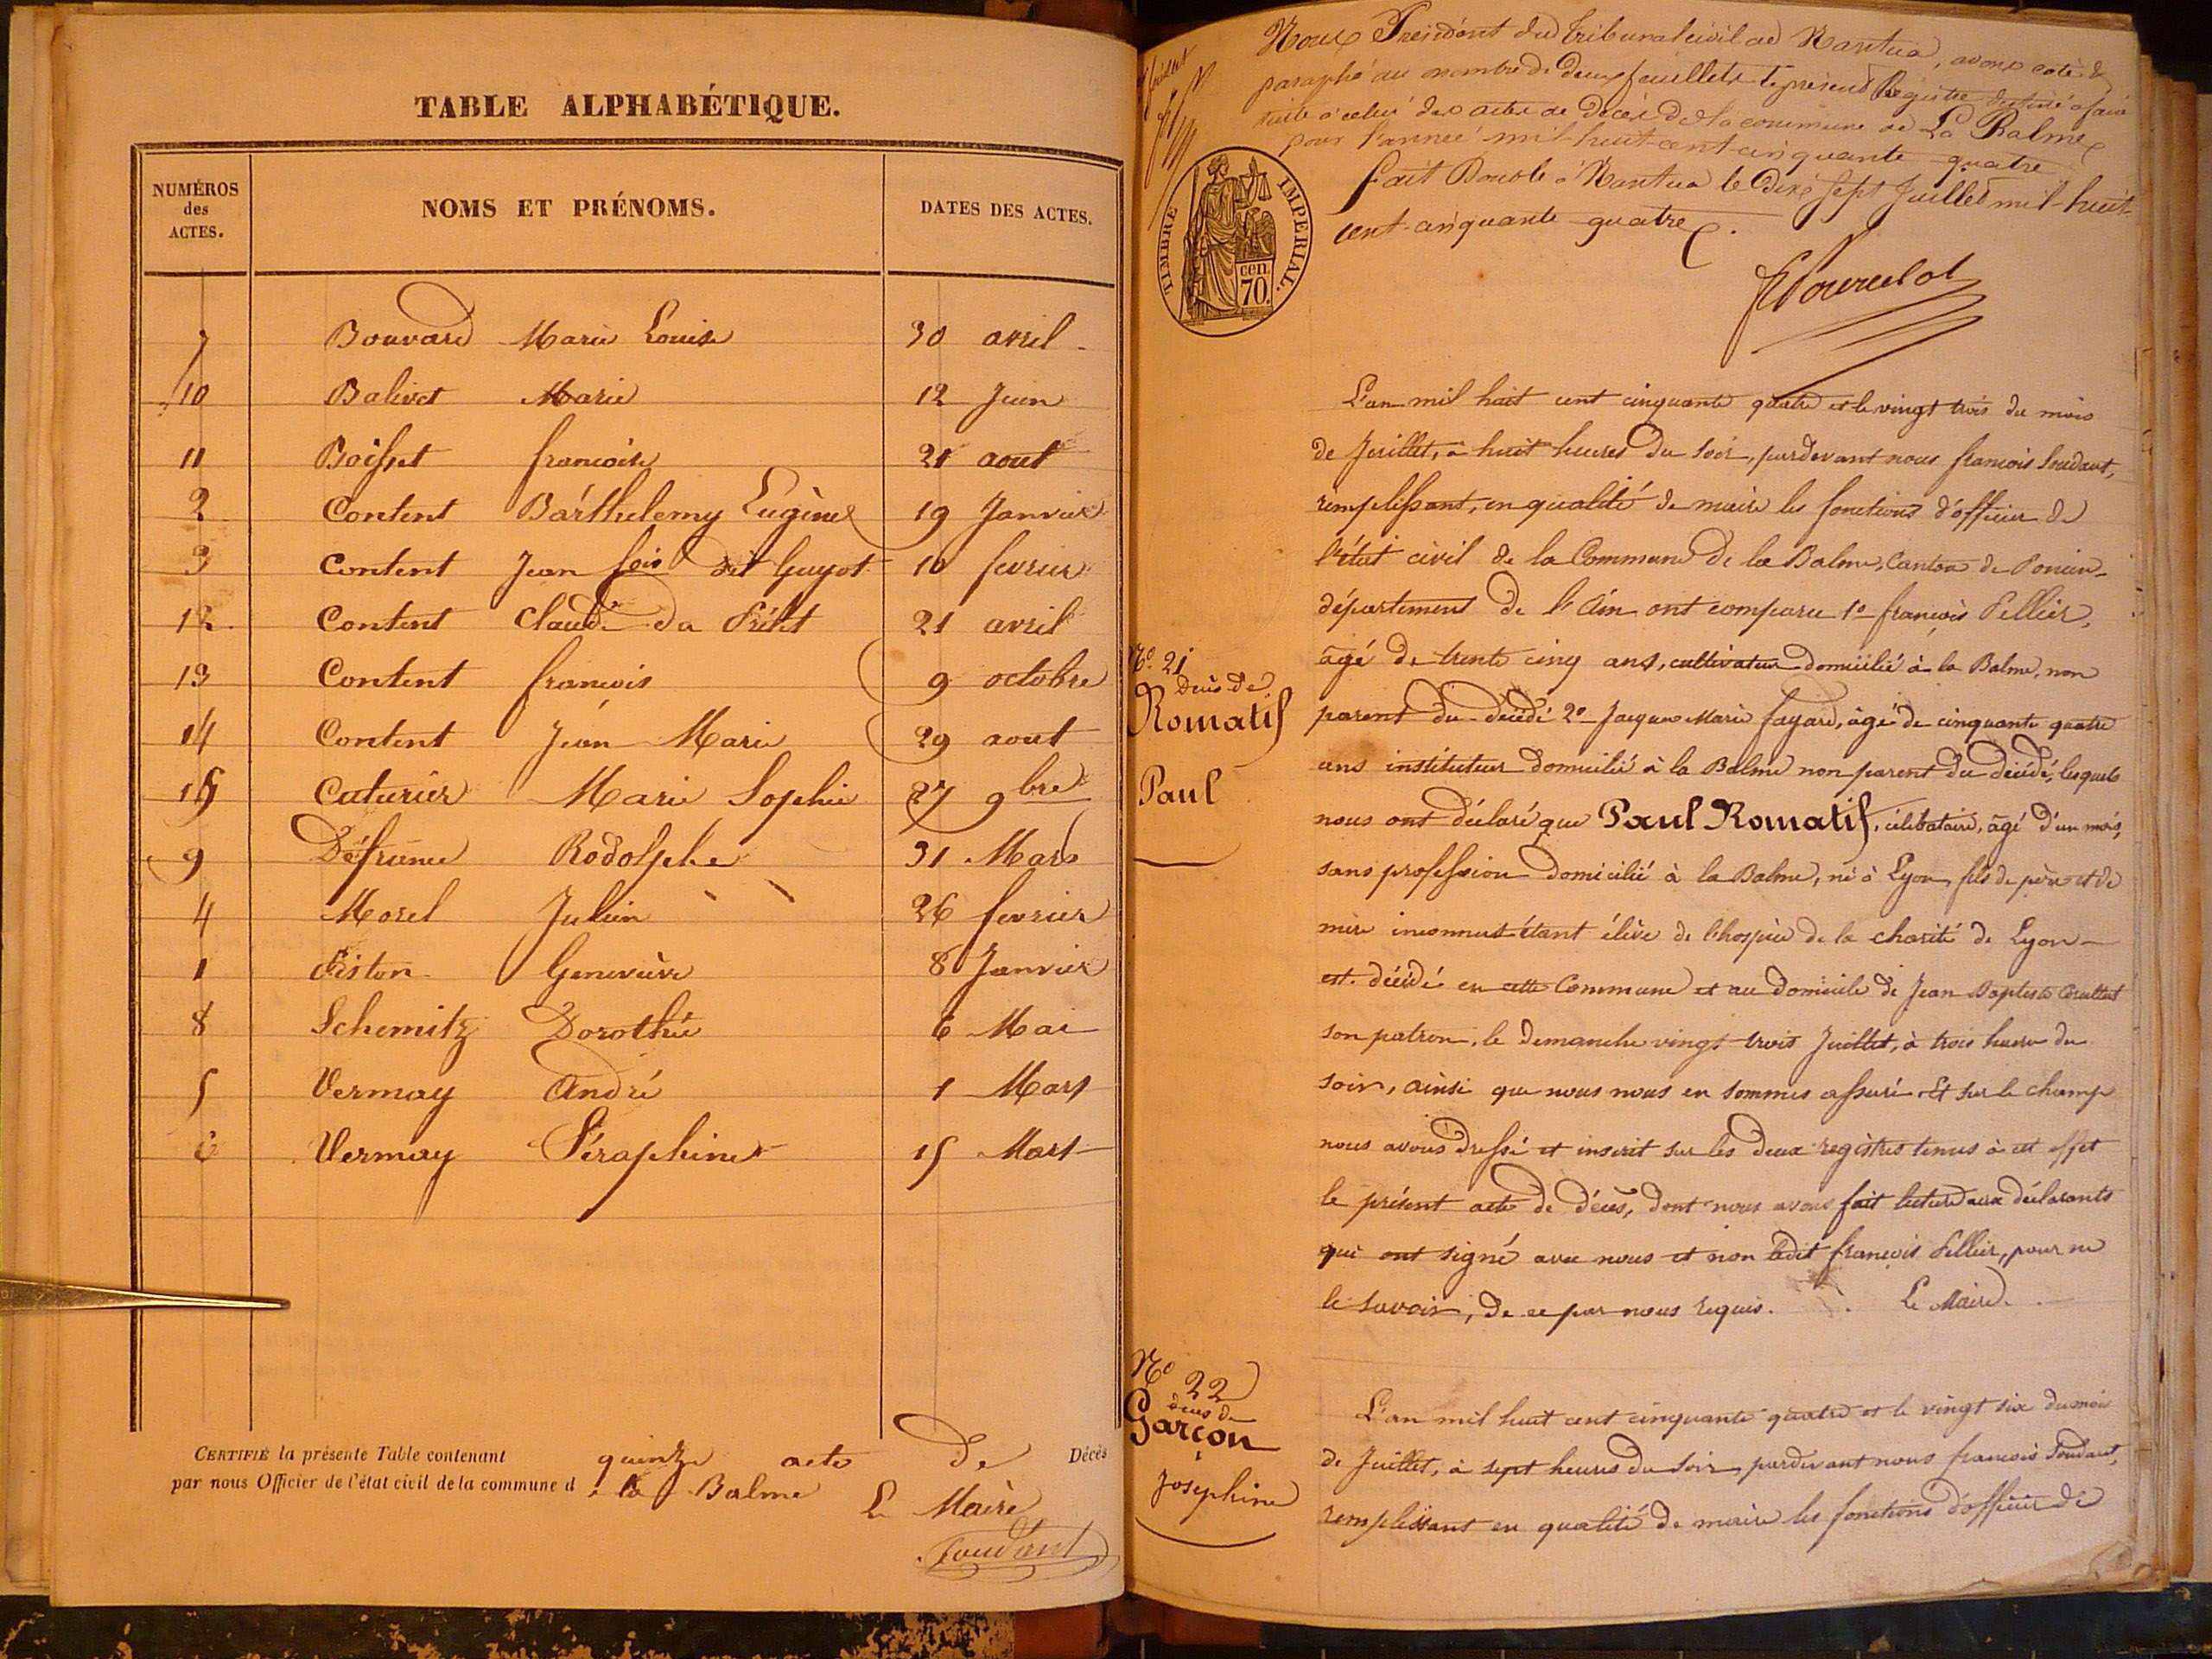 TABLE ALPHABÉTIQUE.
NUMÉROS des ACTES. NOMS ET PRÉNOMS. DATES DES ACTES.
7 Bouvard Marie Louise 30 avril
10 Balivet Marie 12 Juin
11 Boisset francoise 21 aout
2 Content Barthelemy Eugène 19 Janvier
3 Content Jean fois dit Guyot 10 fevrier
12 Content Claude 21 avril
13 Content francois 9 octobre
14 Content Jean Marie 29 aout
15 Cuturier Marie Sophie 27 9bre
9 Défrance Rodolphe 31 Mars
4 Morel Julien 26 fevrier
1 Piston Genevieve 8 Janvier
8 Schemitz Dorothée 6 Mai
5 Vermay André 1 Mars
6 Vermay Séraphine 15 Mars
CERTIFIÉ la présente Table contenant quinze acte de Décès
par nous Officier de l'état civil de la commune d e la Balme
Le Maire
Soudant
Nous Président du Tribunal civil de Nantua, avons coté &
paraphé au nombre de deux feuillets le présent Registre destiné a faire
suite a celui des actes de Décès de la commune de La Balme
pour l'année mil huit cent cinquante quatre
fait Double à Nantua le Dix Sept Juillet mil huit
cent cinquante quatre.
TIMBRE IMPÉRIAL.
70 cen.
L'an mil huit cent cinquante quatre et le vingt trois du mois
de Juillet, à huit heures du soir, pardevant nous francois Soudant,
remplissant, en qualité de maire les fonctions d'officier de
l'état civil de la Commune de la Balme, Canton de Poncin
département de l'Ain ont comparu 1º françois Pellier,
âgé de trente cinq ans, cultivateur domicilié à la Balme, non
parent du décédé 2º Jacques Marie fayard, âgé de cinquante quatre
ans instituteur domicilié à la Balme non parent du décédé, lesquels
nous ont déclaré que Paul Romatif, célibataire, âgé d'un mois,
sans profession domicilié à la Balme, né à Lyon, fils de père et de
mère inconnus étant élève de l'hospice de la charité de Lyon
est décédé en cette Commune et au domicile de Jean Baptiste
son patron, le demanche vingt trois Juillet, à trois heures du
soir, ainsi que nous nous en sommes assuré. Et sur le champ
nous avons dressé et inscrit sur les deux registres tenus à cet effet
le présent acte de décès, dont nous avons fait lecture aux déclarants
qui ont signé avec nous et non ledit francois Pellier, pour ne
le savoir, de ce par nous requis. Le Maire.
Nº 21
décès de
Romatif
Paul
Nº 22
décès de
Garcon
Joséphine
L'an mil huit cent cinquante quatre et le vingt six du mois
de Juillet, à sept heures du soir, pardevant nous francois Soudant,
remplissant en qualité de maire les fonctions d'officier de